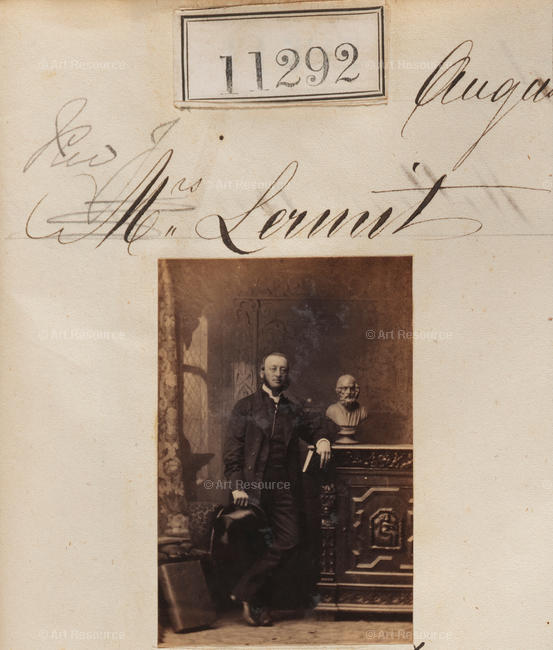 11292
Augu
Rev J.
Mrs. Lermit
© Art Resource
© Art Resource
© Art Resource
© Art Resource
© Art Resource
© Art Resource
© Art Resource
© Art Resource
© Art Resource